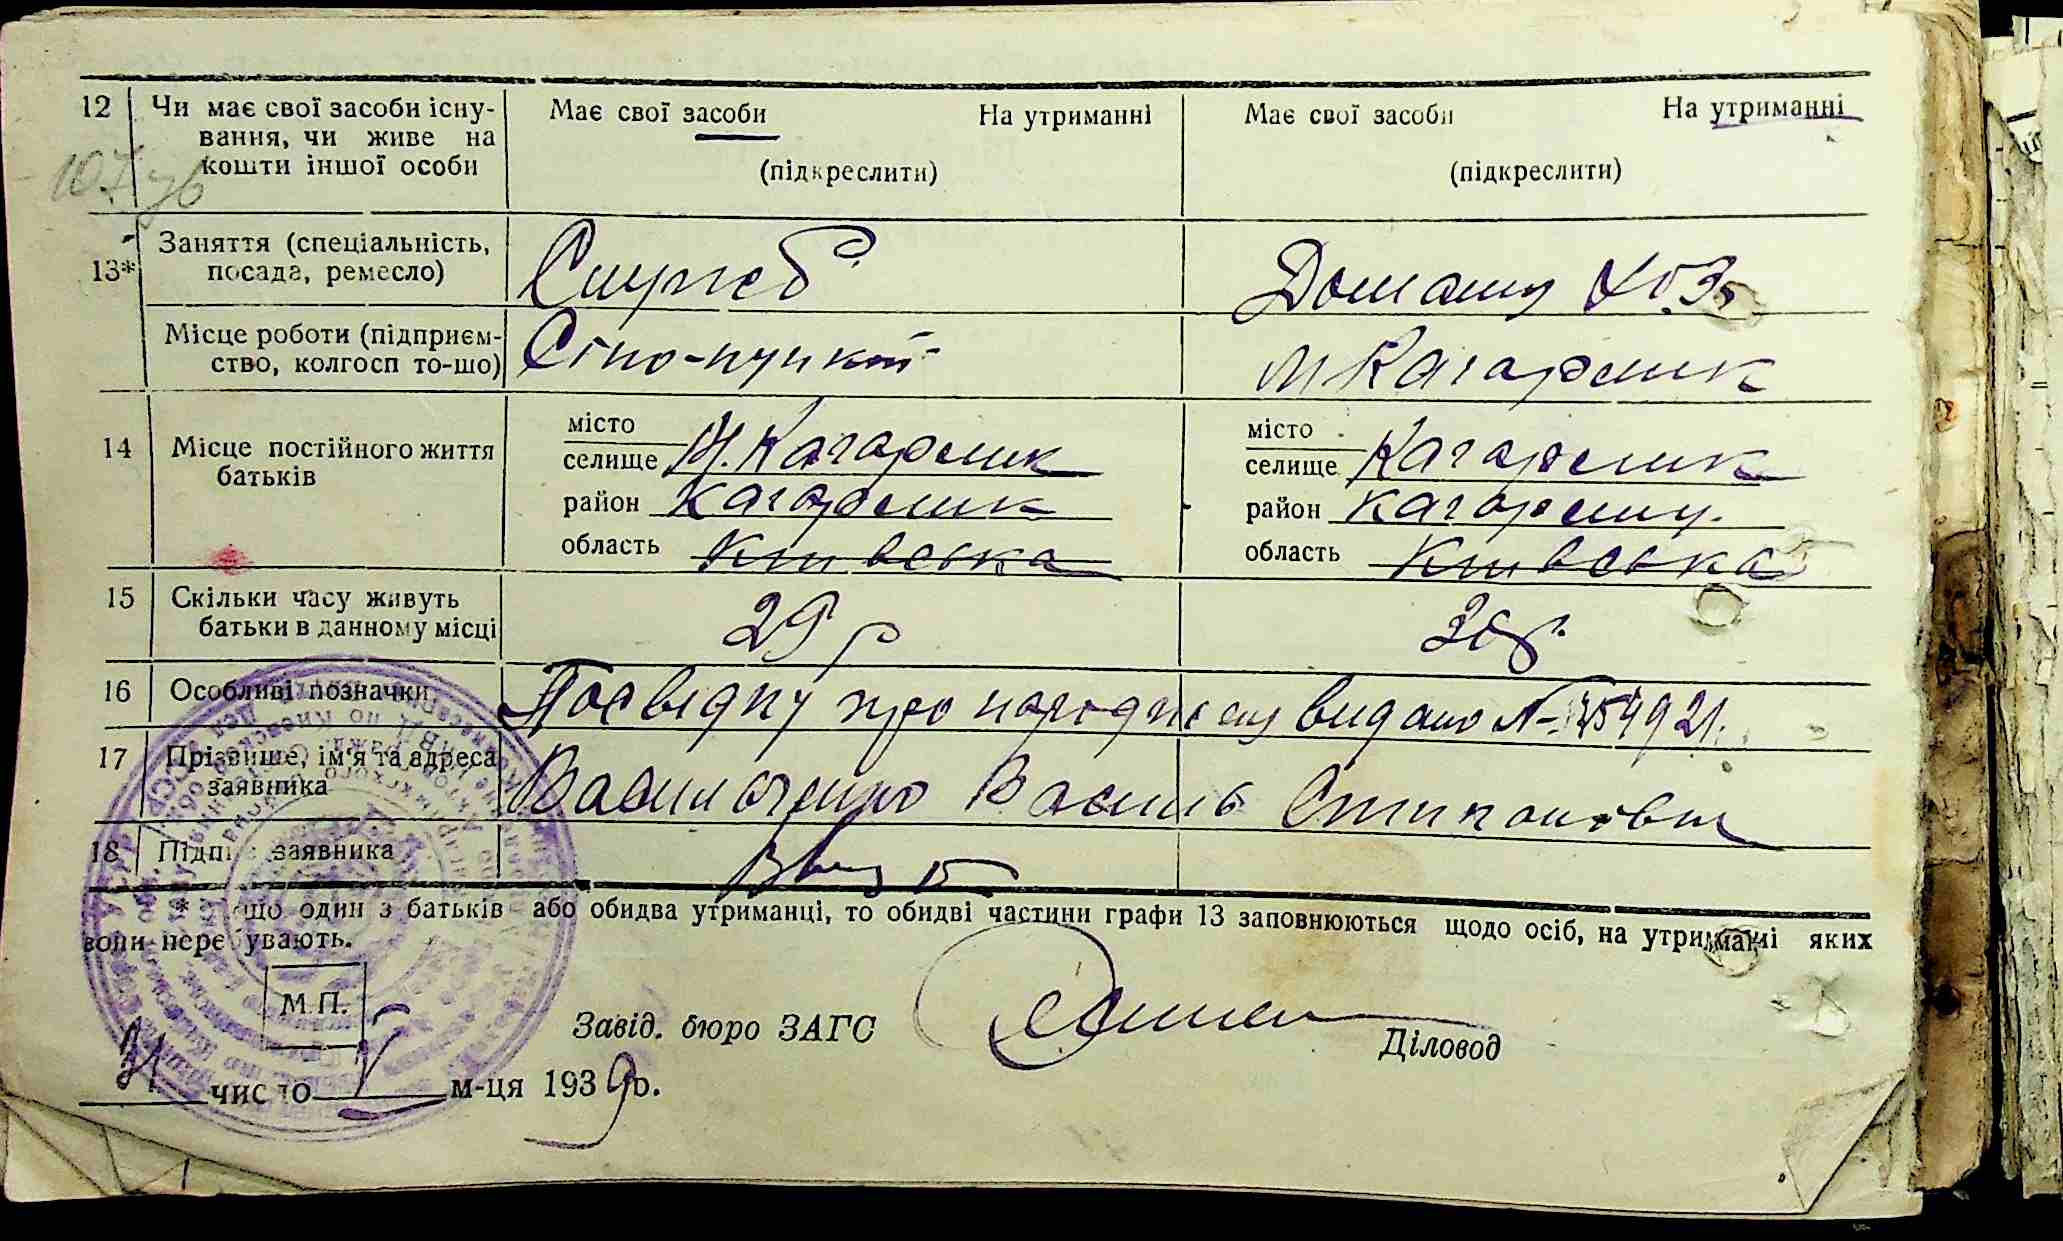 12 Чи має свої засоби існу- Має свої засоби На утриманні Має свої засоби На утриманні
вання, чи живе на
кошти іншої особи (підкреслити) (підкреслити)
Заняття (спеціальність,
13* посада, ремесло) Служб Домашу хоз
Місце роботи (підприєм- Сіно-пункт м Кагарлик
ство, колгосп то-що)
місто місто
14 Місце постійного життя селище М. Кагарлик селище Кагарлик
батьків район Кагарлик район Кагарлиц.
область Київська область Київська
15 Скільки часу живуть 29 р
батьки в данному місці
16 Особливі позначки Посвідку про народження видано №
17 Прізвище, ім'я та адреса Васильченко Василь Степанович
заявника
18 Підпис заявника
* Якщо один з батьків або обидва утриманці, то обидві частини графи 13 заповнюються щодо осіб, на утриманні яких
вони перебувають.
М.П.
Завід. бюро ЗАГС Діловод
31 число V м-ця 1939 р.